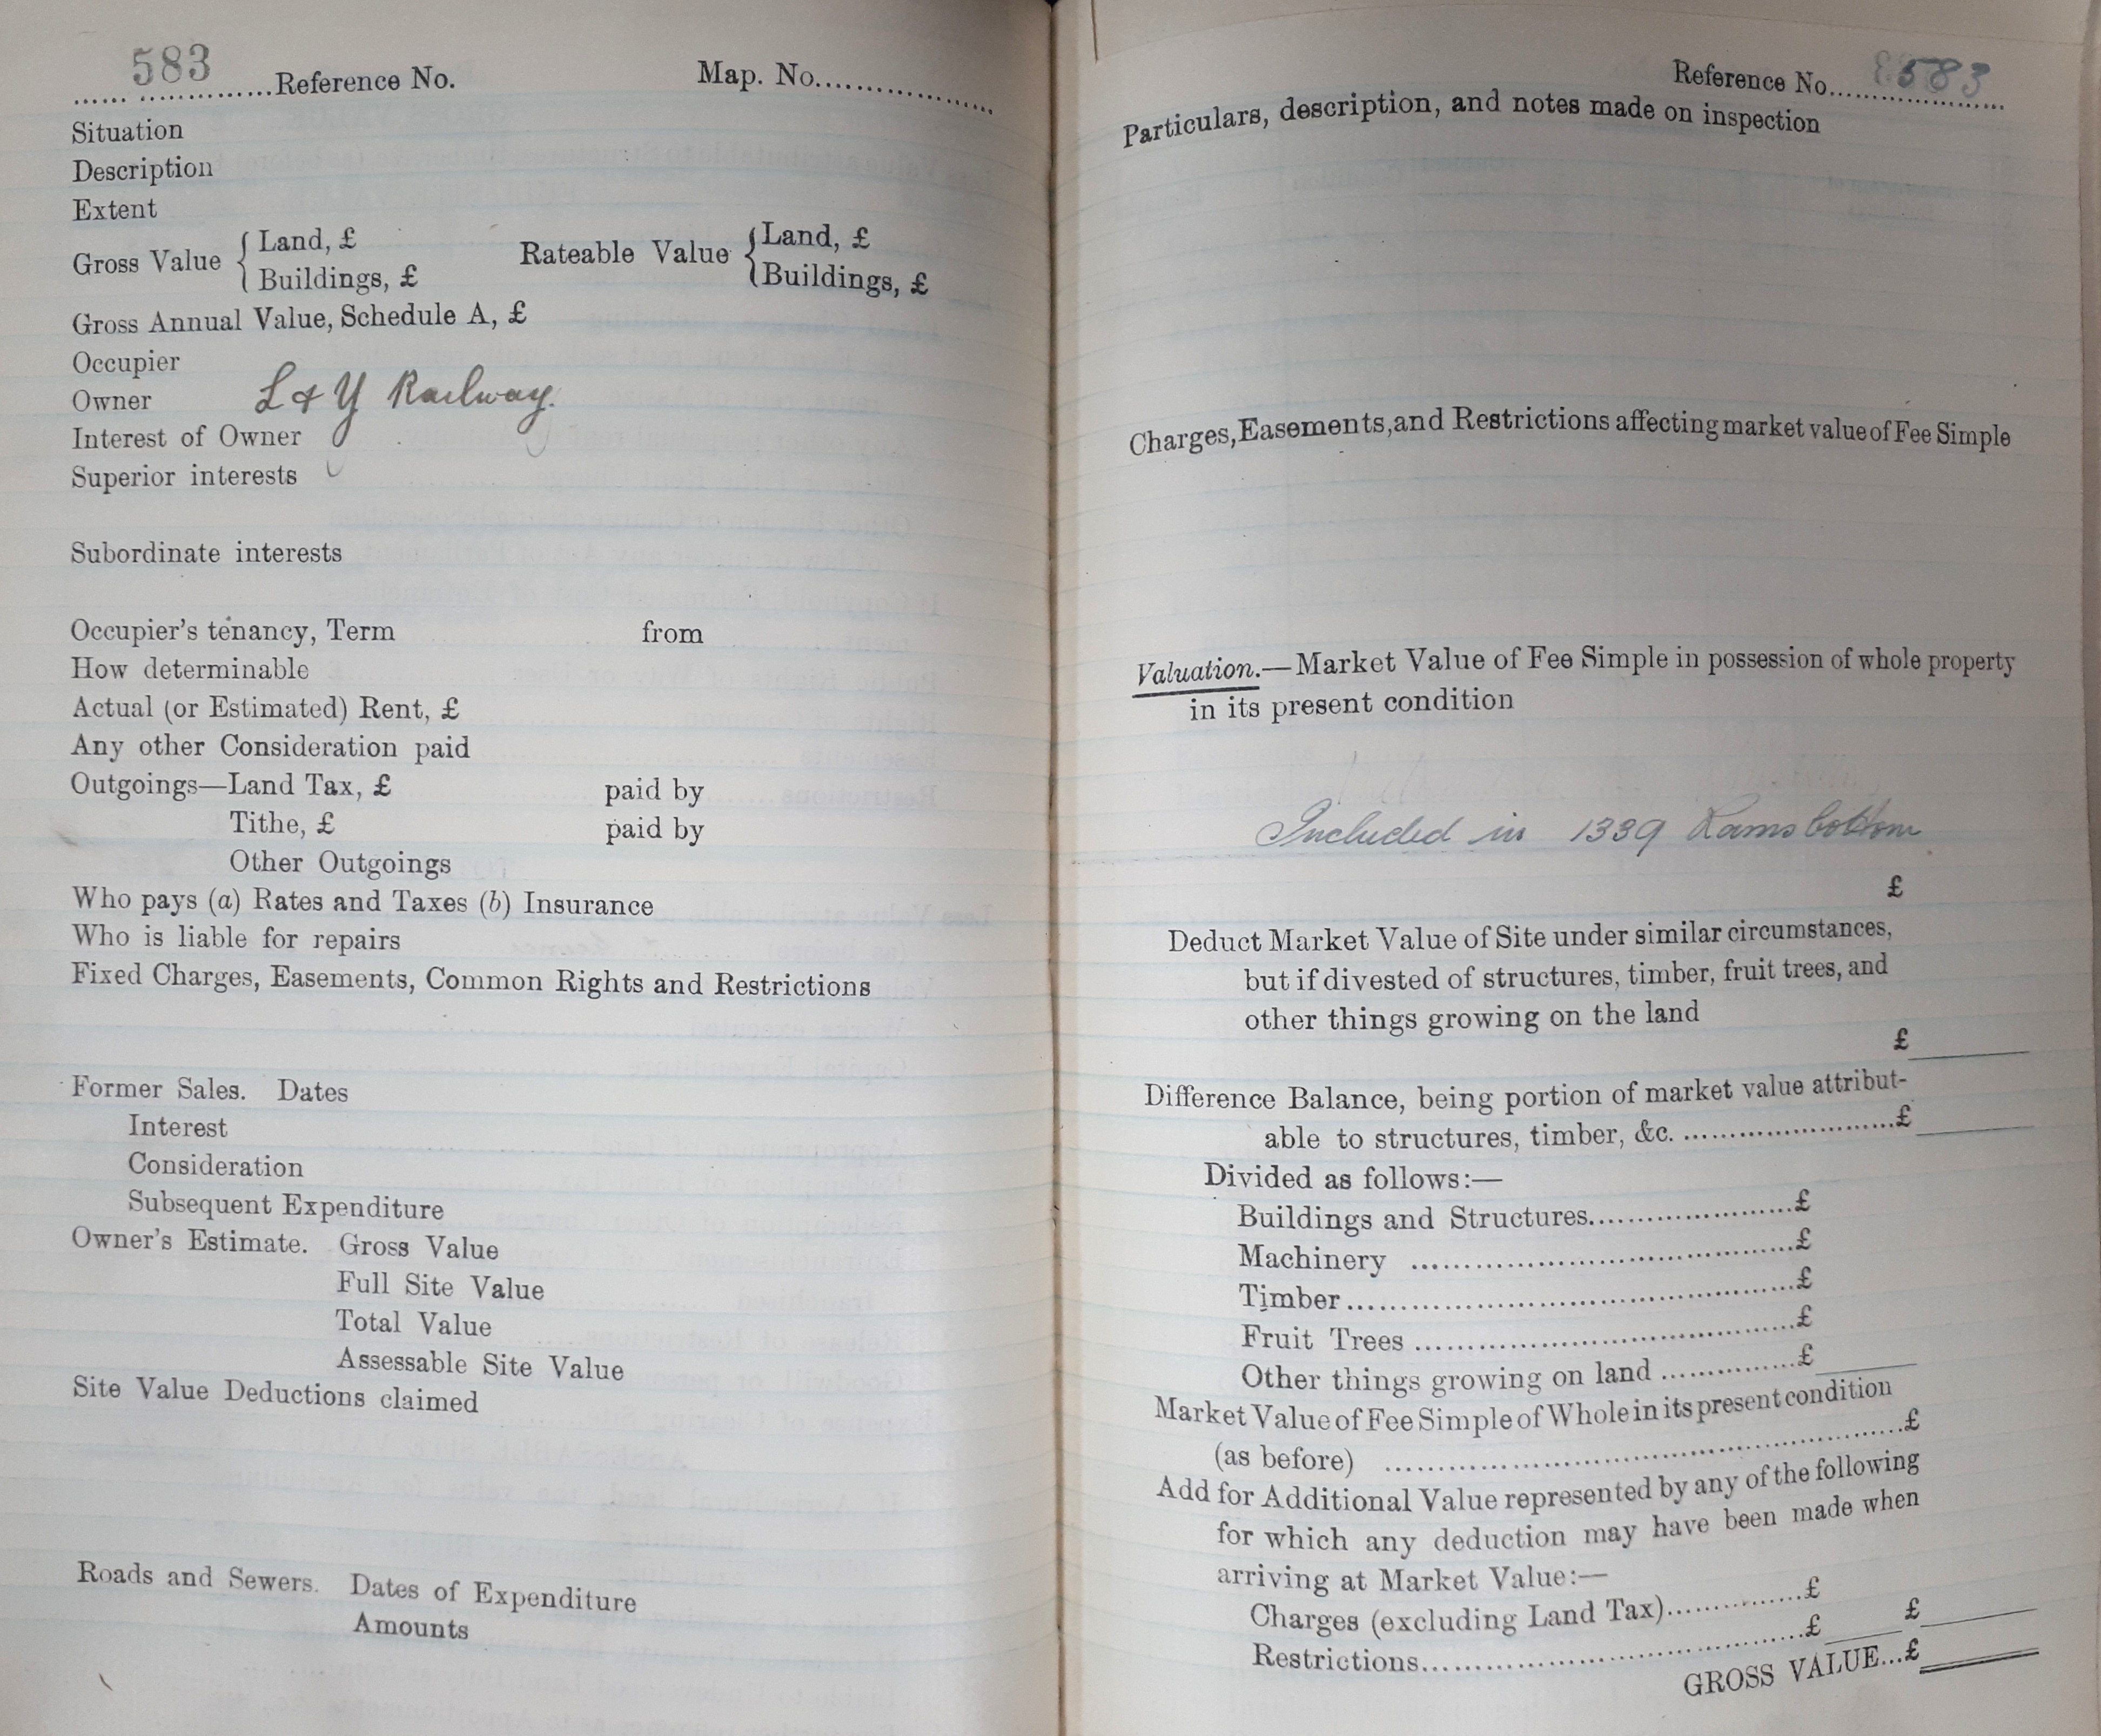 583 Reference No. Map. No.
Situation
Description
Extent
Gross Value { Land, £ Rateable Value { Land, £
Buildings, £ Buildings, £
Gross Annual Value, Schedule A, £
Occupier
Owner L & Y Railway.
Interest of Owner
Superior interests
Subordinate interests
Occupier's tenancy, Term from
How determinable
Actual (or Estimated) Rent, £
Any other Consideration paid
Outgoings—Land Tax, £ paid by
Tithe, £ paid by
Other Outgoings
Who pays (a) Rates and Taxes (b) Insurance
Who is liable for repairs
Fixed Charges, Easements, Common Rights and Restrictions
Former Sales. Dates
Interest
Consideration
Subsequent Expenditure
Owner's Estimate. Gross Value
Full Site Value
Total Value
Assessable Site Value
Site Value Deductions claimed
Roads and Sewers. Dates of Expenditure
Amounts
Reference No. 583
Particulars, description, and notes made on inspection
Charges, Easements, and Restrictions affecting market value of Fee Simple
Valuation.—Market Value of Fee Simple in possession of whole property
in its present condition
Included in 1339 Ramsbottom
£
Deduct Market Value of Site under similar circumstances,
but if divested of structures, timber, fruit trees, and
other things growing on the land
£
Difference Balance, being portion of market value attribut-
able to structures, timber, &c. £
Divided as follows:—
Buildings and Structures £
Machinery £
Timber £
Fruit Trees £
Other things growing on land £
Market Value of Fee Simple of Whole in its present condition
(as before) £
Add for Additional Value represented by any of the following
for which any deduction may have been made when
arriving at Market Value:—
Charges (excluding Land Tax) £
Restrictions £ £
GROSS VALUE...£